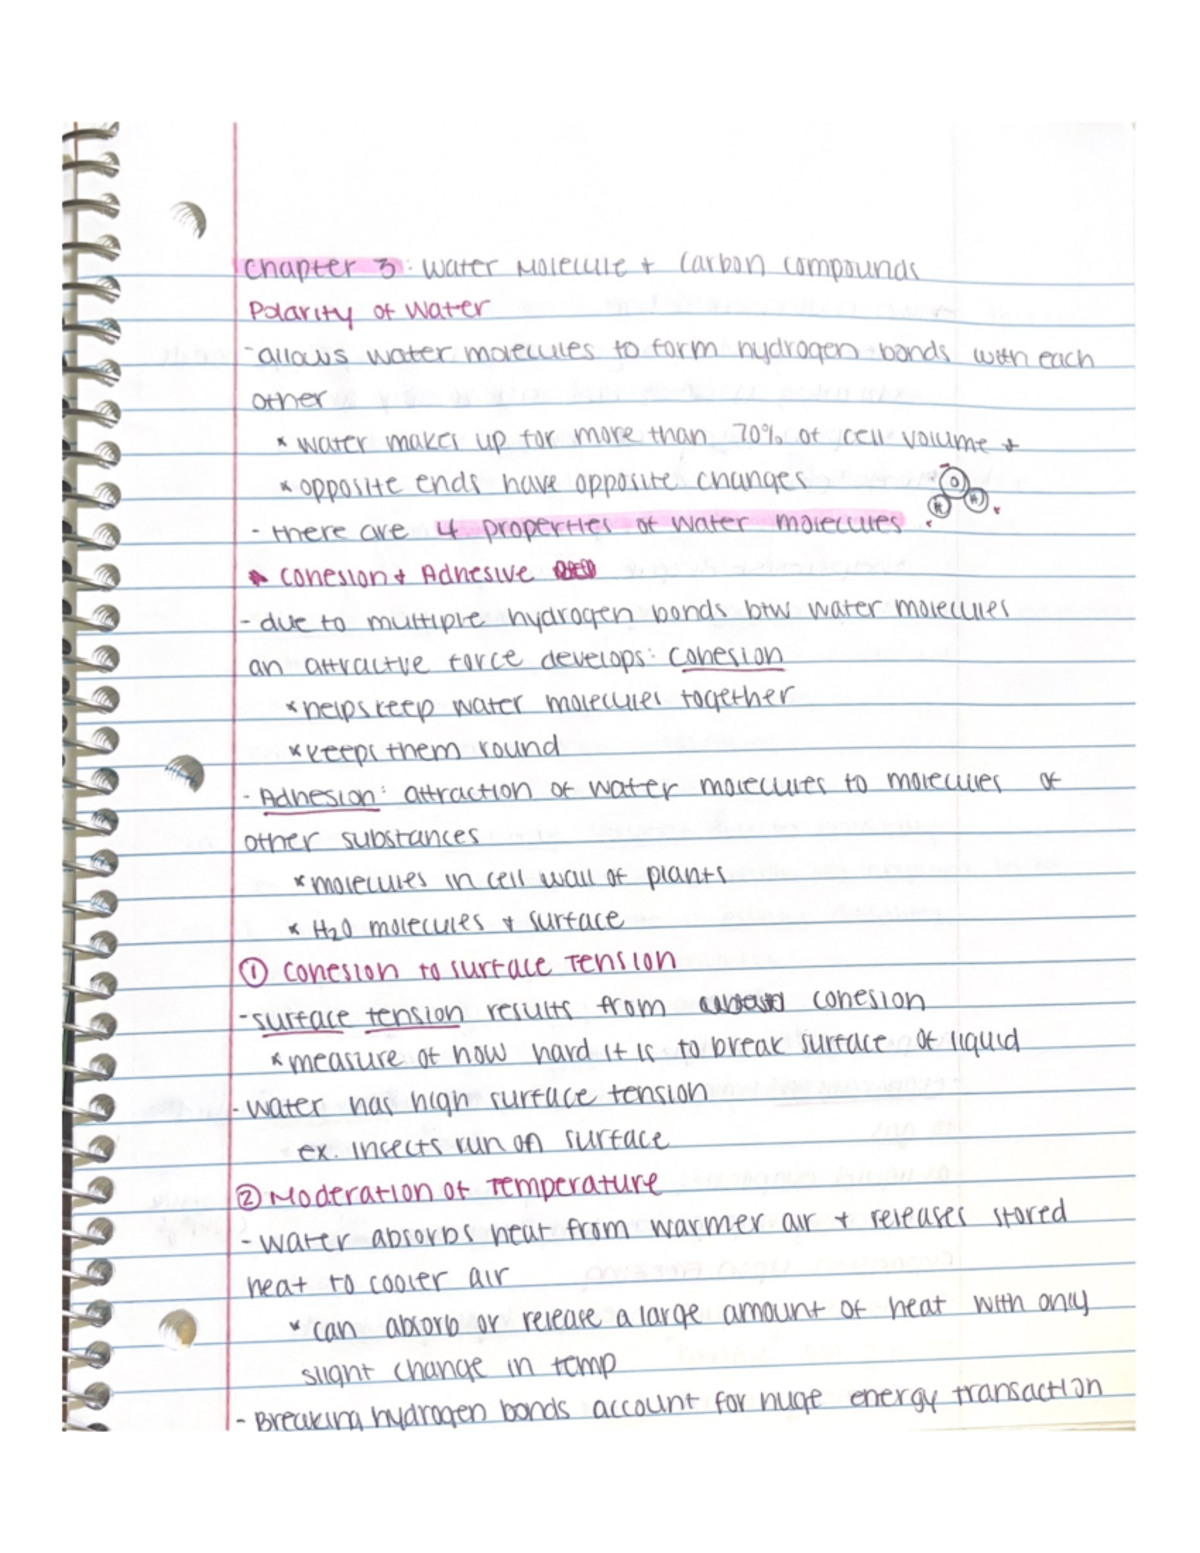 Chapter 3: Water Molecule + Carbon compounds
Polarity of Water
- allows water molecules to form hydrogen bonds with each
other
* water makes up for more than 70% of cell volume +
* opposite ends have opposite changes
O
H
H
- there are 4 properties of water molecules
Cohesion + Adhesive
- due to multiple hydrogen bonds btw water molecules
an attractive force develops: cohesion
* helps keep water molecules together
* keeps them round
- Adhesion: attraction of water molecules to molecules of
other substances
* molecules in cell wall of plants
* H2O molecules + surface
① Cohesion to surface Tension
- surface tension results from cohesion
* measure of how hard it is to break surface of liquid
- water has high surface tension
ex. insects run on surface
② Moderation of Temperature
- water absorbs heat from warmer air + releases stored
heat to cooler air
* can absorb or release a large amount of heat with only
slight change in temp
- Breaking hydrogen bonds account for huge energy transaction